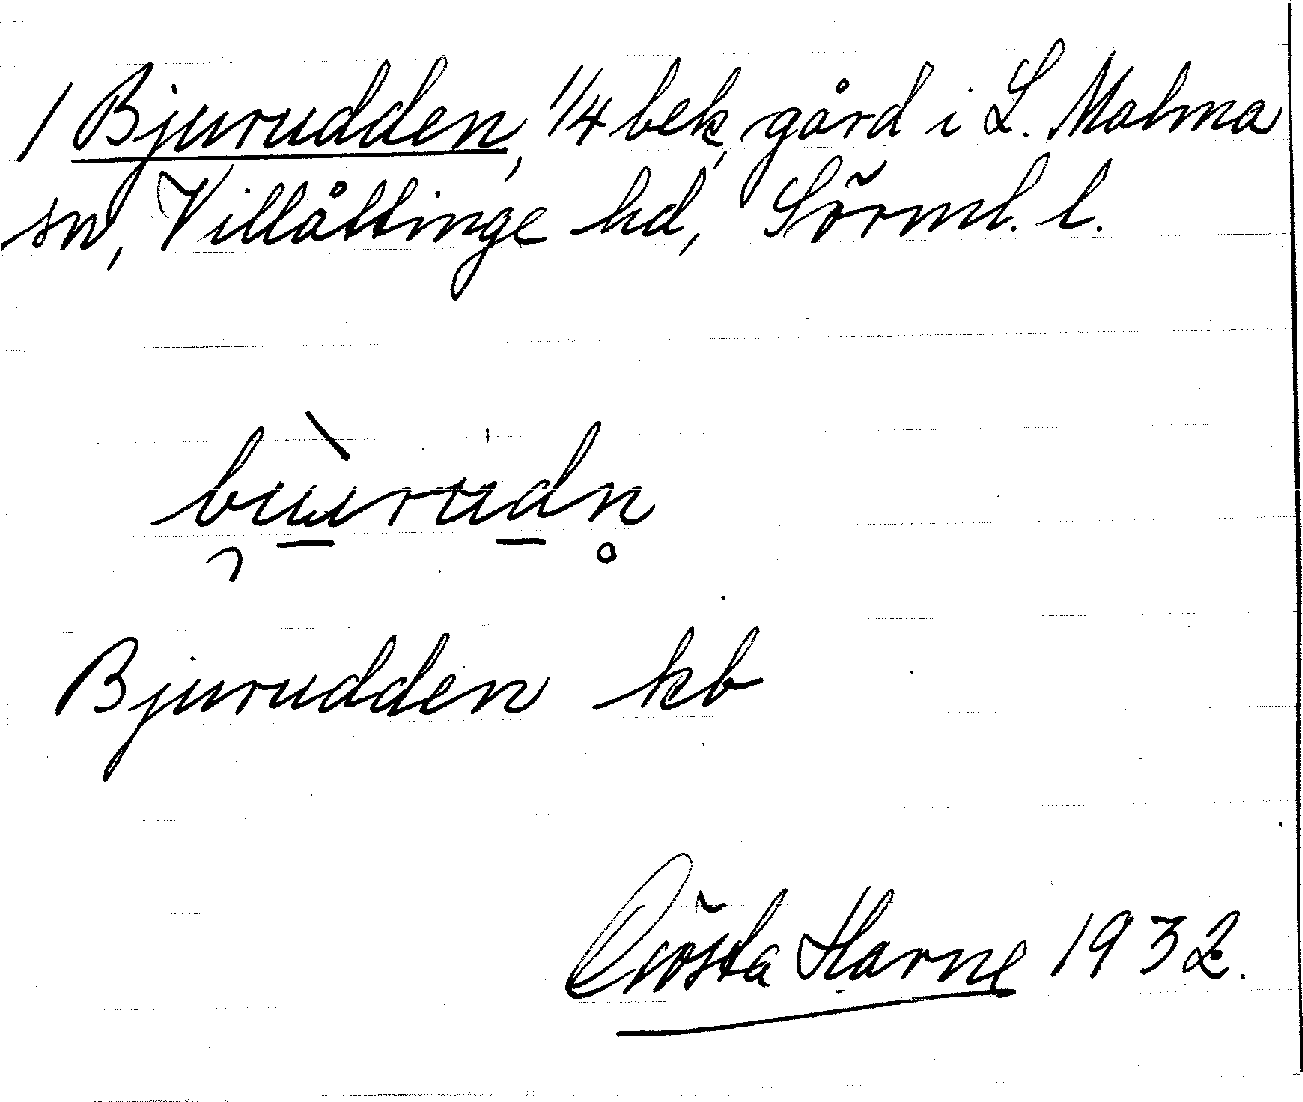 1 Bjurudden, 1/4 bek, gård i L. Malma
sn, Villåttinge hd, Sörml. l.
Bjurudden kb
Gösta Harne 1932.